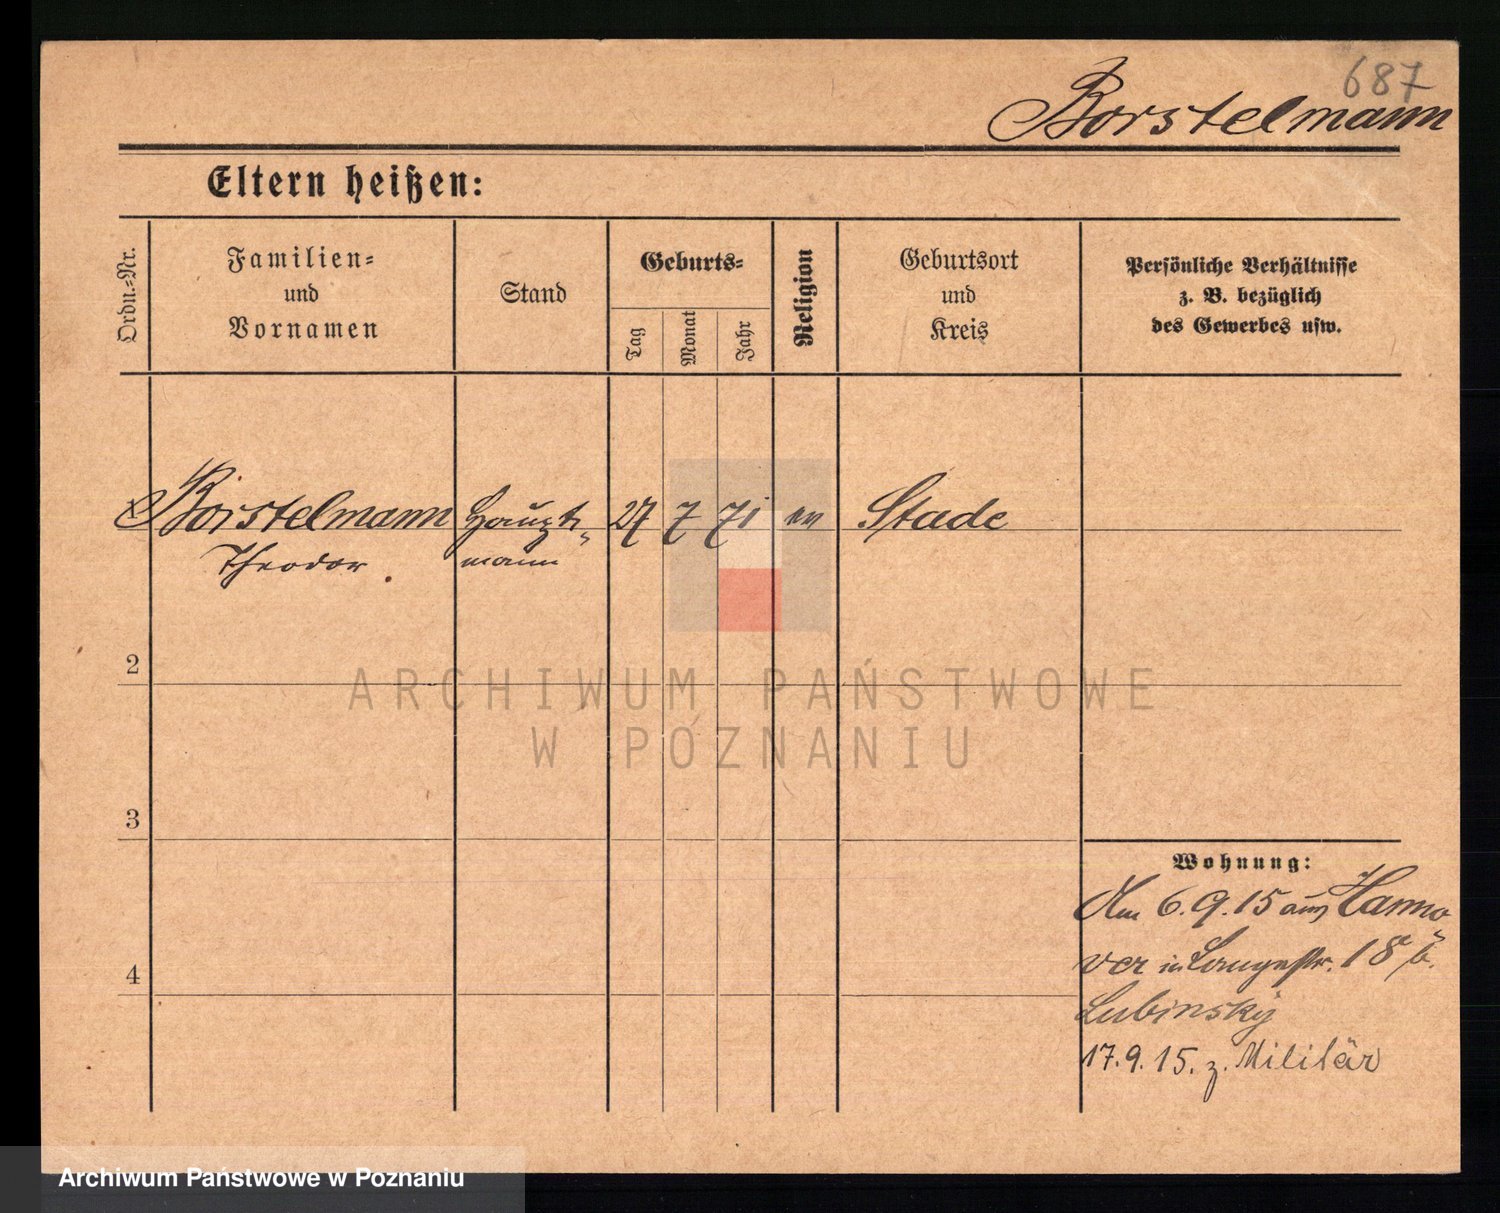 687
Borstelmann
Eltern heißen:
Ordn.-Nr.
Familien-
und
Vornamen
Stand
Geburts-
Tag
Monat
Jahr
Religion
Geburtsort
und
Kreis
Persönliche Verhältnisse
z. B. bezüglich
des Gewerbes usw.
1 Borstelmann Haupt- 27 7 71 ev Stade
Theodor mann
2
ARCHIWUM PAŃSTWOWE
W POZNANIU
3
Wohnung:
Am 6.9.15 aus Hanno-
4
ver in Langestr. 18 b.
Lubinsky
17.9.15. z. Militär
Archiwum Państwowe w Poznaniu